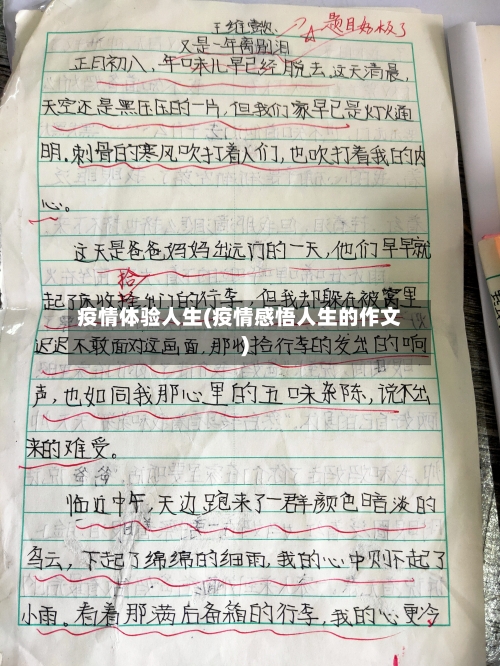 王维雪 题目妙极了
又是一年离别泪
正月初八、年味儿早已经脱去,这天清晨,
天空还是黑压压的一片,但我们家早已是灯火通
明。刺骨的寒风吹打着人们,也吹打着我的内
心。
这天是爸爸妈妈出远门的一天,他们早早就
拾
起了床收拾他们的行李,但我却躲在被窝里
疫情体验人生(疫情感悟人生的作文
)
迟迟不敢面对这画面,那收拾行李的发出的响
声,也如同我那心里的五味杂陈,说不出
来的难受。
临近中午,天边跑来了一群颜色暗淡的
乌云,下起了绵绵的细雨,我的心中则下起了
小雨。看着那满后备箱的行李,我的心更冷